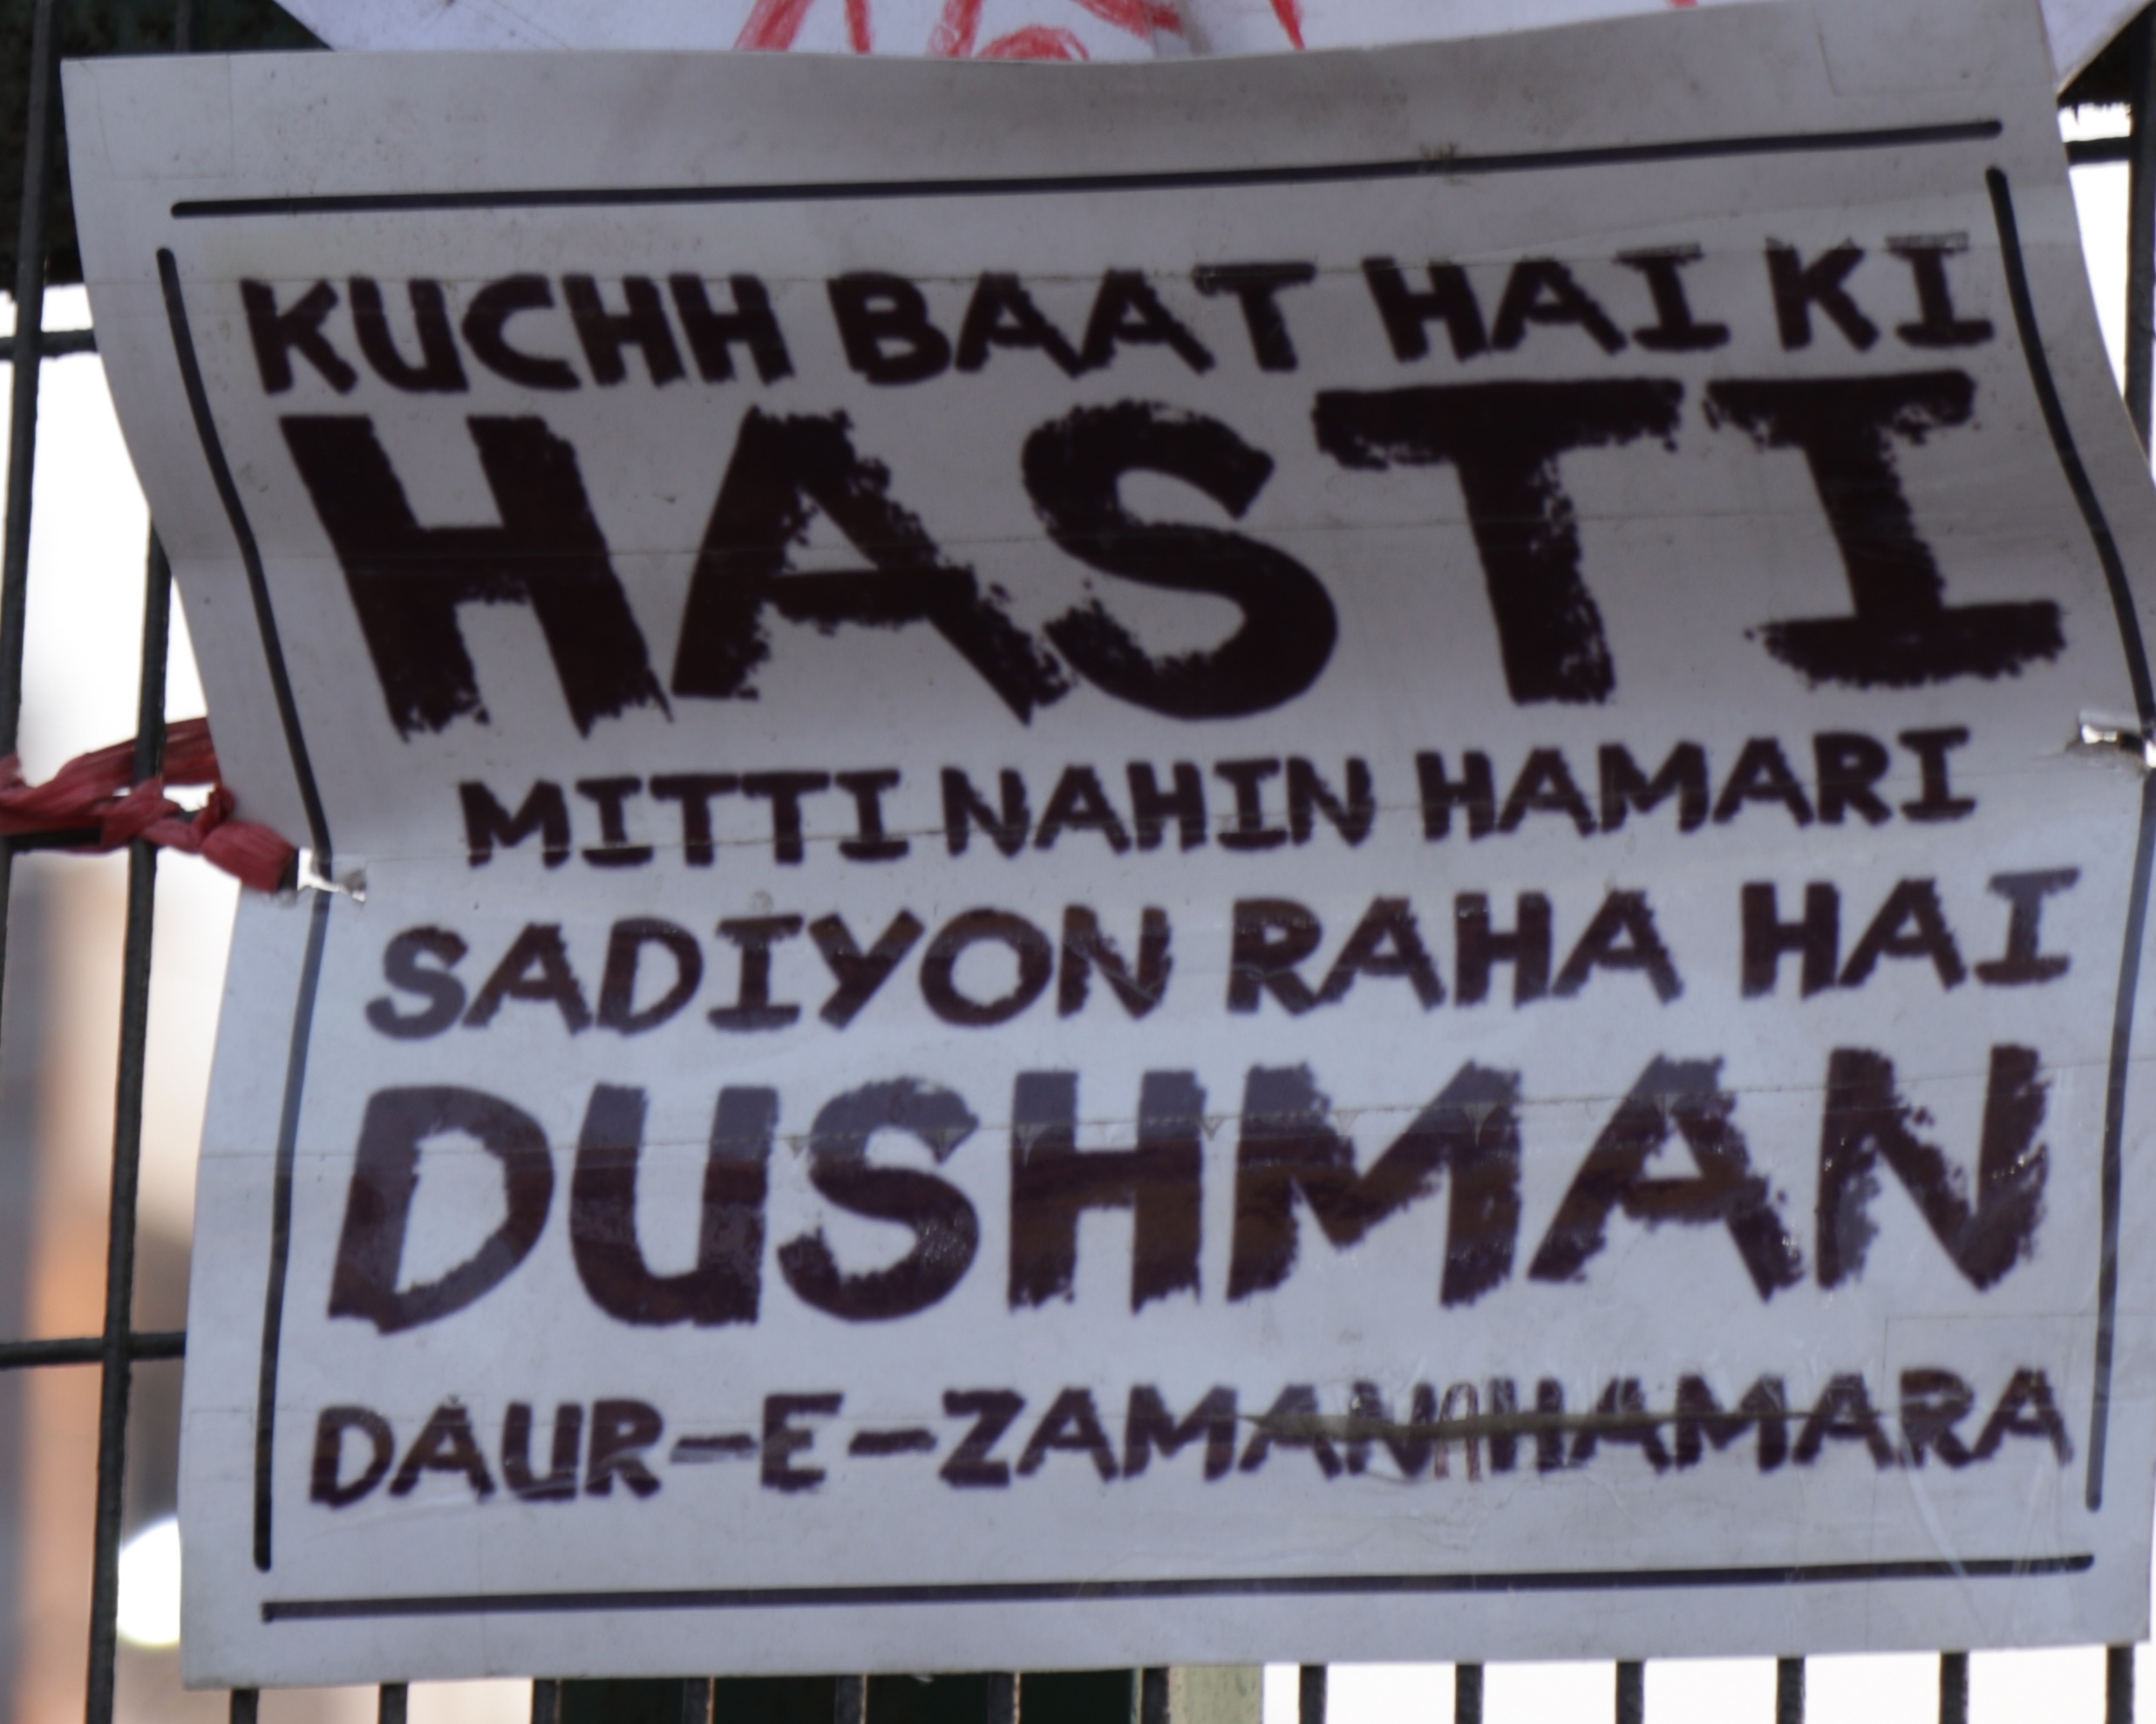 KUCHH BAAT HAI KI
HASTI
MITTI NAHIN HAMARI
SADIYON RAHA HAI
DUSHMAN
DAUR-E-ZAMANA HAMARA